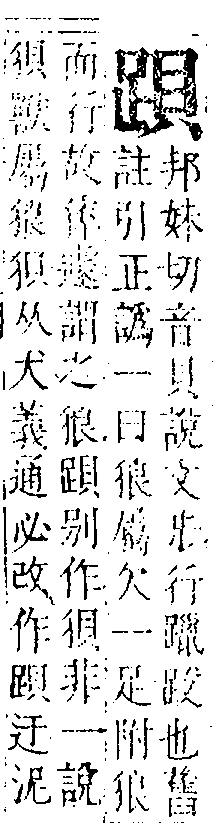 䟺
邦妹切音貝說文步行躐跋也舊
註引正譌一曰狼屬欠一足附狼
而行故倅遽謂之狼䟺別作狽非一說
狽獸屬狼狽从犬義通必改作䟺迂泥